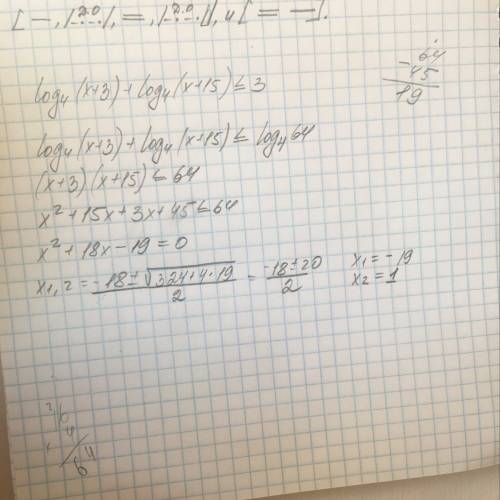 log₄(x+3)+log₄(x+15)≤3
64
-45
19
log₄(x+3)+log₄(x+15)≤log₄64
(x+3)(x+15)≤64
x²+15x+3x+45≤64
x²+18x-19=0
x₁,₂=(-18±√(324+4·19))/2=(-18±20)/2 x₁=-19
x₂=1
64